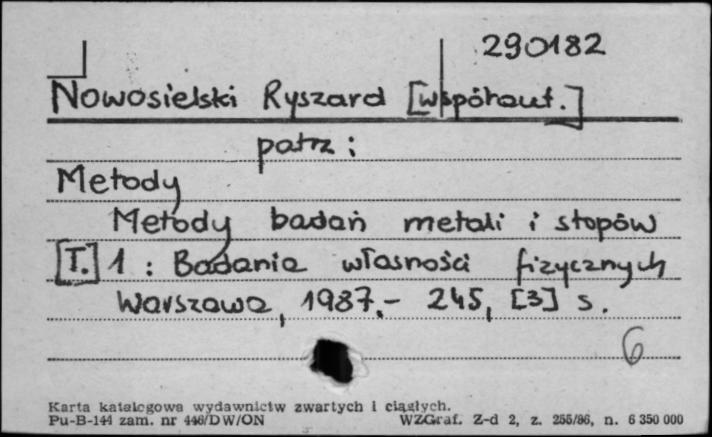 290182
Nowosielski Ryszard [współaut.]
patrz :
Metody
Metody badań metali i stopów
[T.] 1 : Badania własności fizycznych
Warszawa, 1987.- 245, [3] s.
6
Karta katalogowa wydawnictw zwartych i ciągłych.
Pu-B-144 zam. nr 446/DW/ON WZGraf. Z-d 2, z. 255/86, n. 6 350 000